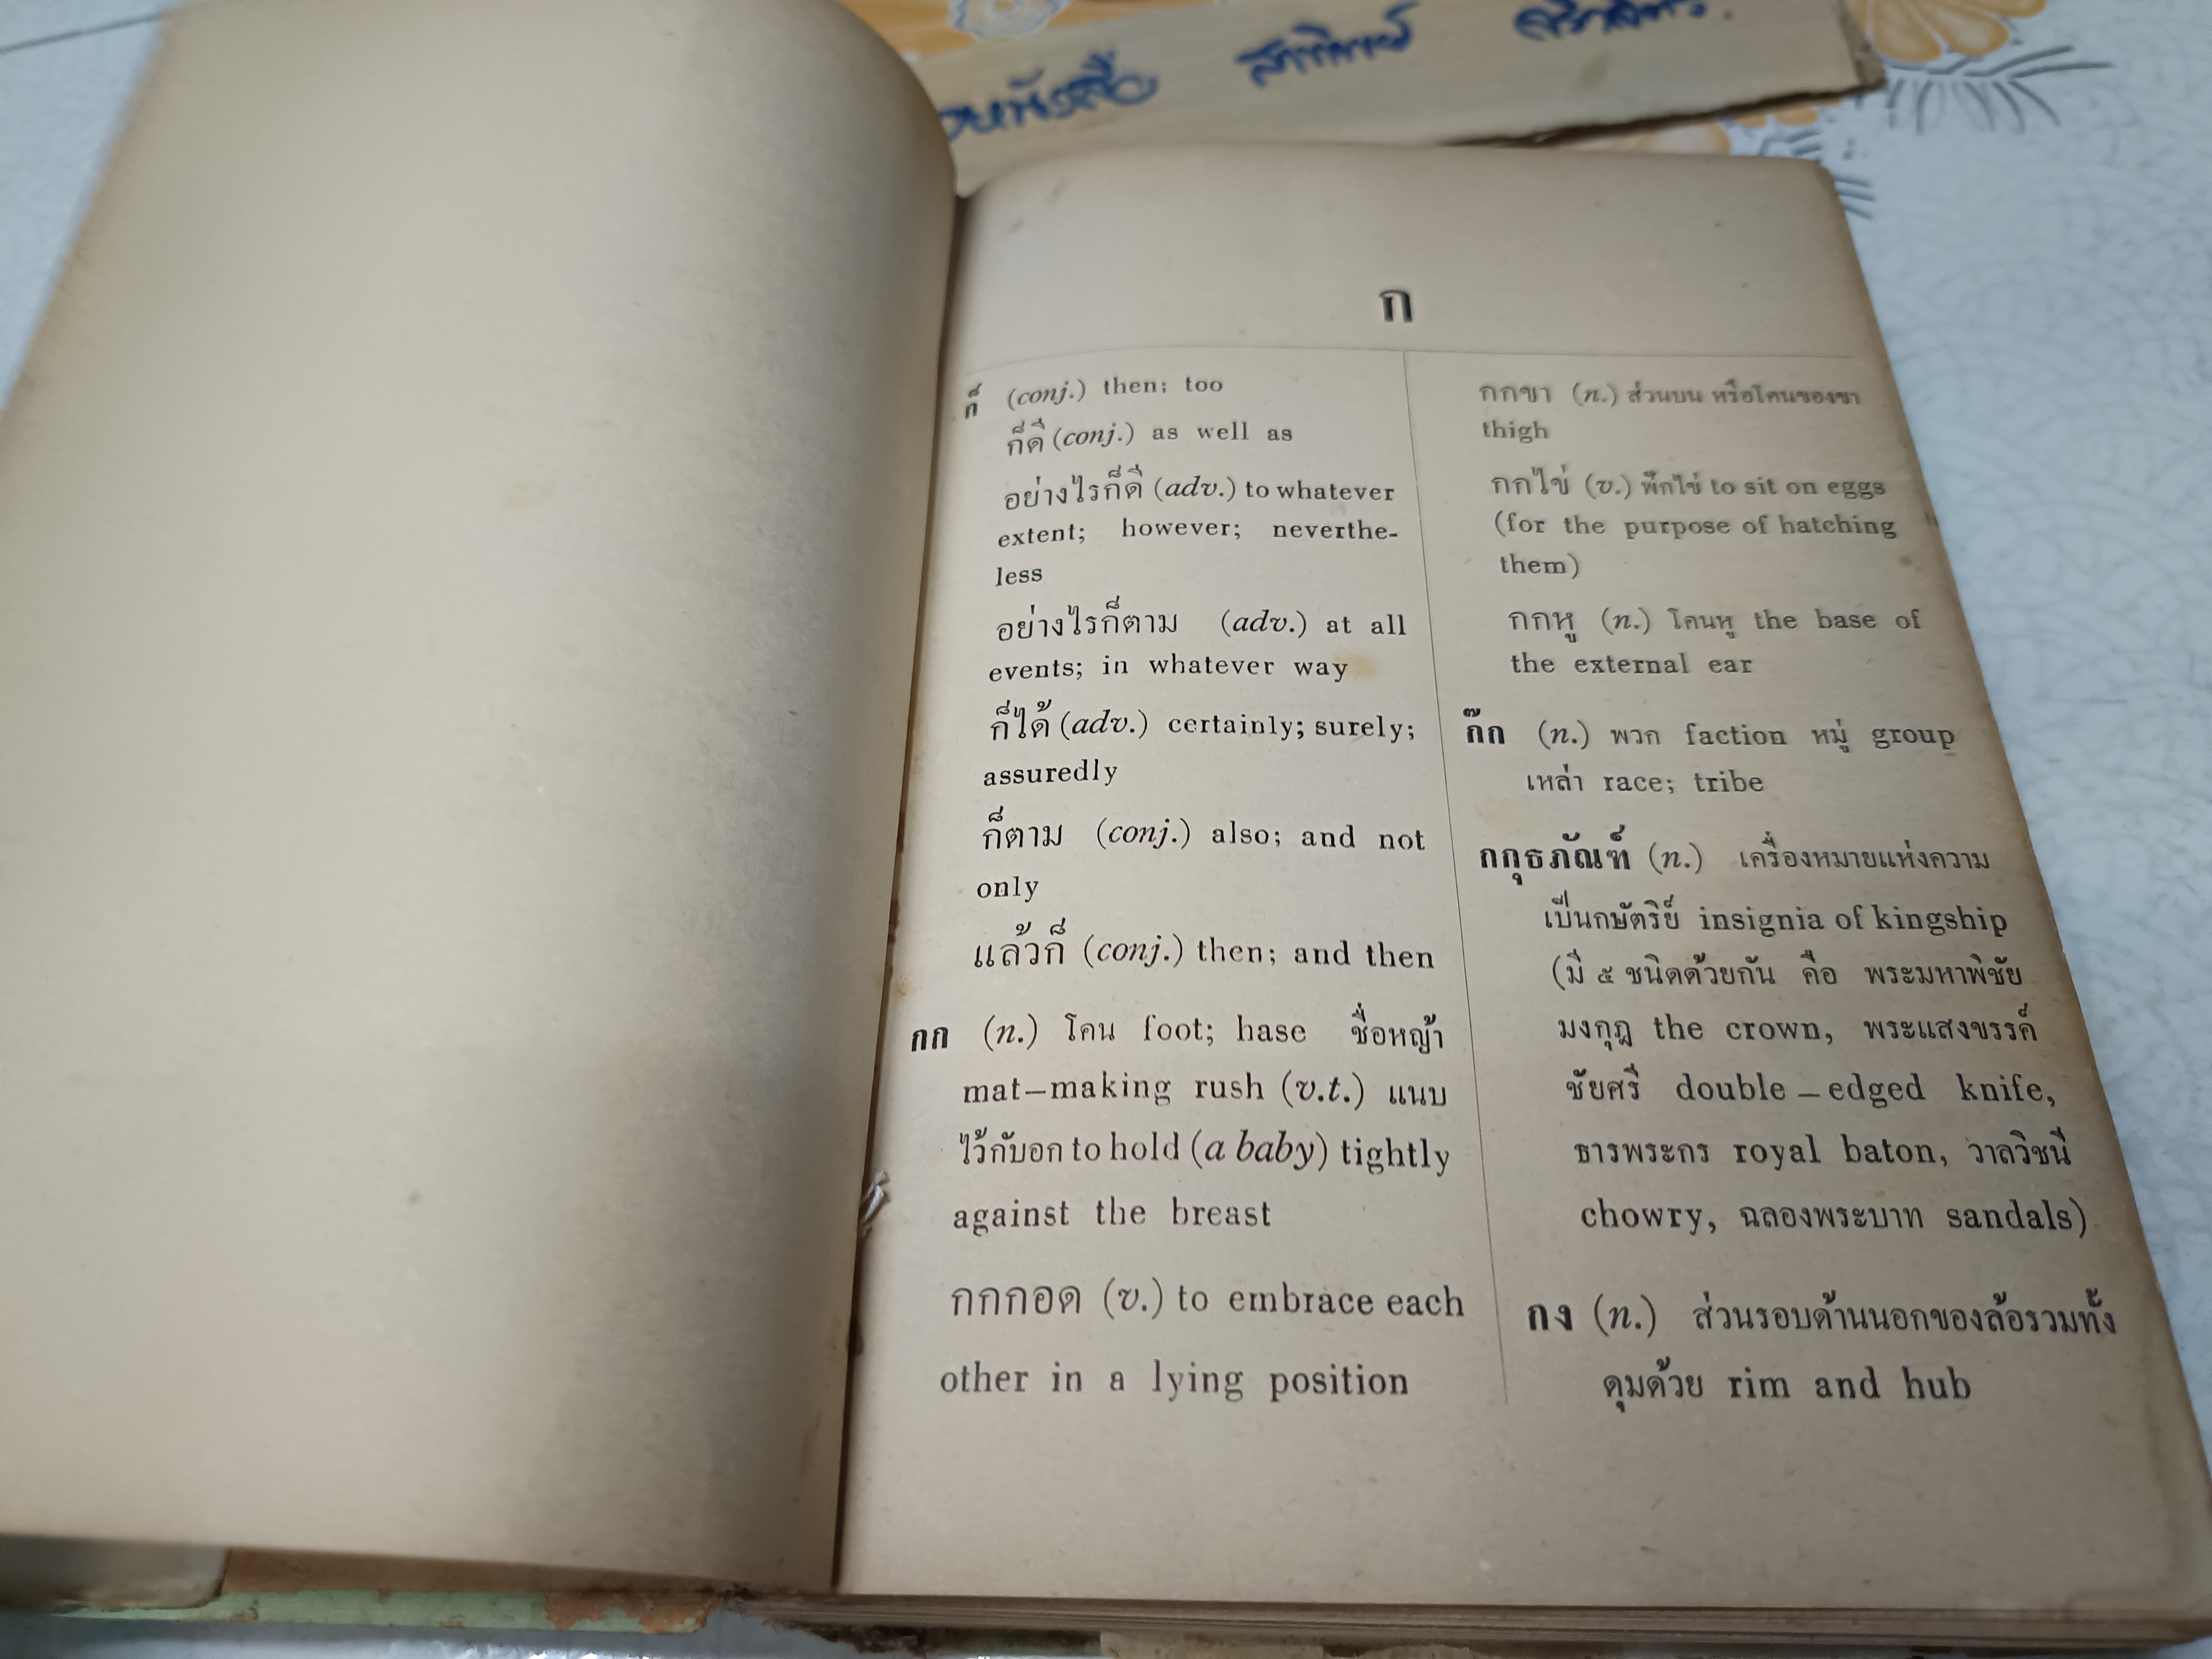 หนังสือ
ก
ก็ (conj.) then; too
ก็ดี (conj.) as well as
อย่างไรก็ดี (adv.) to whatever
extent; however; neverthe-
less
อย่างไรก็ตาม (adv.) at all
events; in whatever way
ก็ได้ (adv.) certainly; surely;
assuredly
ก็ตาม (conj.) also; and not
only
แล้วก็ (conj.) then; and then
กก (n.) โคน foot; hase ชื่อหญ้า
mat-making rush (v.t.) แนบ
ไว้กับอก to hold (a baby) tightly
against the breast
กกกอด (v.) to embrace each
other in a lying position
กกขา (n.) ส่วนบน หรือโคนของขา
thigh
กกไข่ (v.) ฟักไข่ to sit on eggs
(for the purpose of hatching
them)
กกหู (n.) โคนหู the base of
the external ear
ก๊ก (n.) พวก faction หมู่ group
เหล่า race; tribe
กกุธภัณฑ์ (n.) เครื่องหมายแห่งความ
เป็นกษัตริย์ insignia of kingship
(มี ๕ ชนิดด้วยกัน คือ พระมหาพิชัย
มงกุฎ the crown, พระแสงขรรค์
ชัยศรี double-edged knife,
ธารพระกร royal baton, วาลวิชนี
chowry, ฉลองพระบาท sandals)
กง (n.) ส่วนรอบด้านนอกของล้อรวมทั้ง
ดุมด้วย rim and hub